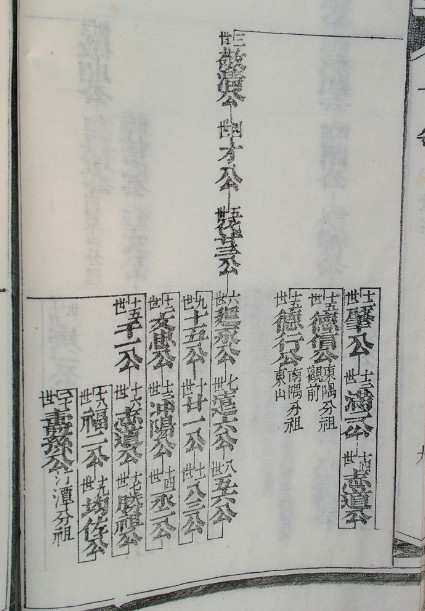 三世 公 四世 才公 五世 廿三公
十二世 肇公 十三世 滿二公 十四世 志道公
十五世 德信公 東隅分祖 觀前
十五世 德行公 南隅分祖 東山
六世 丞公 七世 遠六公 八世 五六公
九世 十五公 十世 廿一公 十一世 八三公
十二世 文惠公 十三世 沖陽公 十四世 丞二公
十五世 千一公 十六世 志道公 十七世 勝祖公
十八世 福二公 十九世 公
二十世 壽孫公 潭分祖